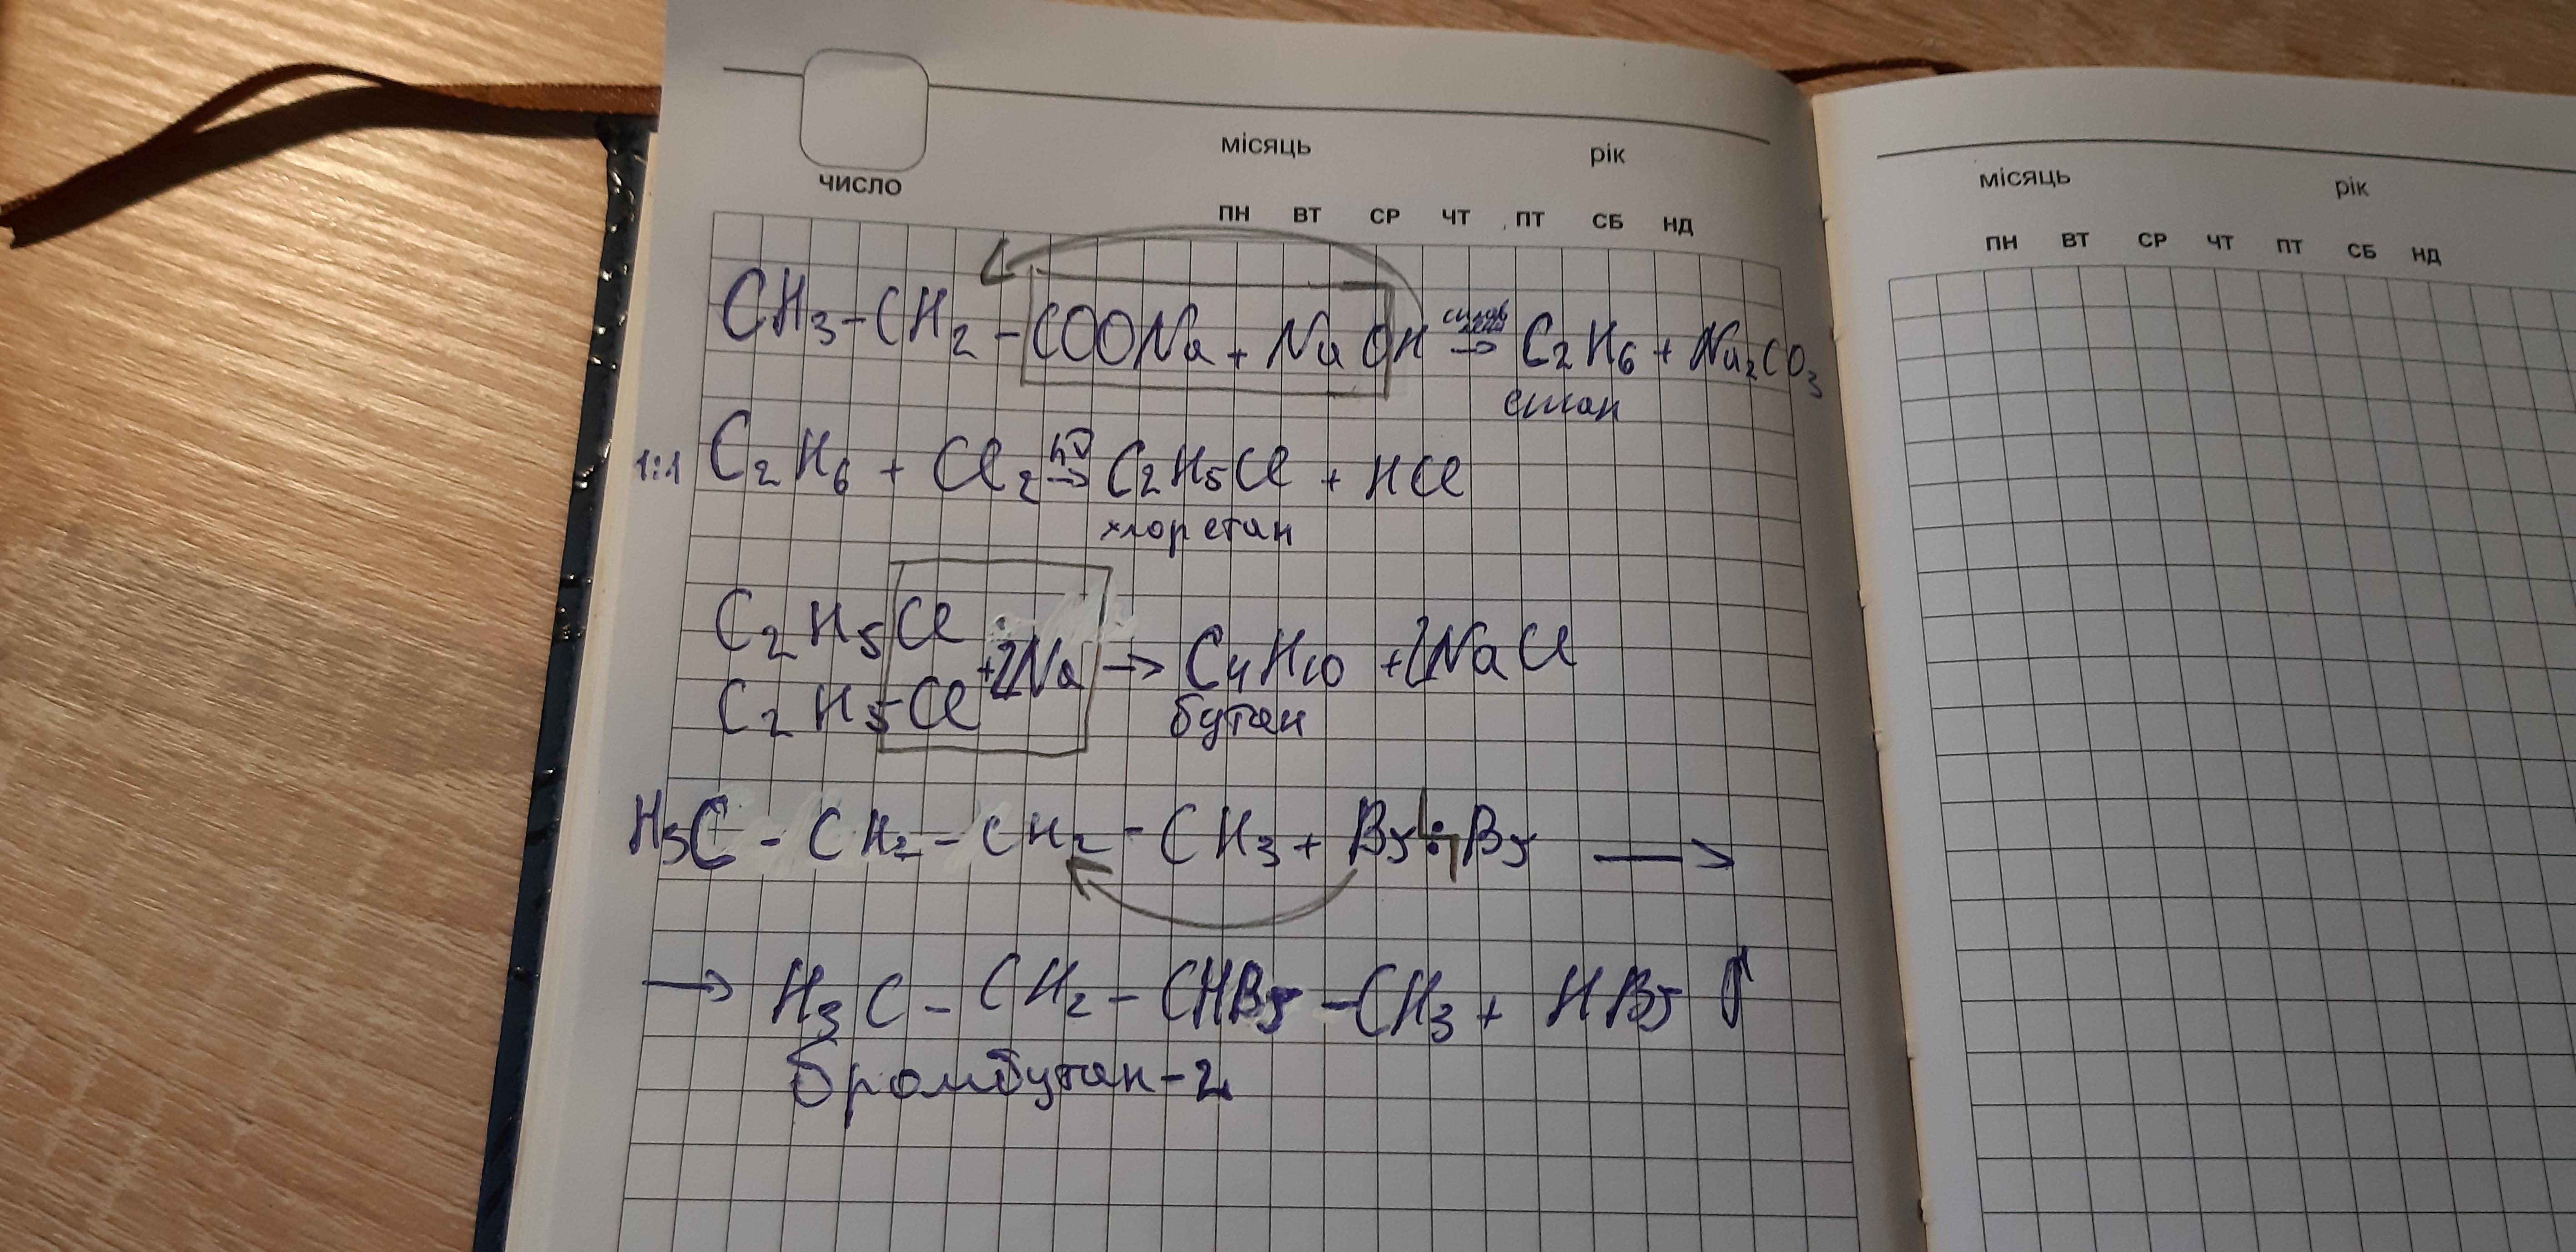 місяць рік
число
ПН ВТ СР ЧТ ПТ СБ НД
CH₃-CH₂-COONa + NaOH → C₂H₆ + Na₂CO₃
етан
1:1 C₂H₆ + Cl₂ hν → C₂H₅Cl + HCl
хлоретан
C₂H₅Cl
+2Na → C₄H₁₀ + 2NaCl
C₂H₅-Cl
бутан
H₃C - CH₂ - CH₂ - CH₃ + Br : Br →
→ H₃C - CH₂ - CHBr - CH₃ + HBr ↑
бромбутан-2
місяць рік
ПН ВТ СР ЧТ ПТ СБ НД